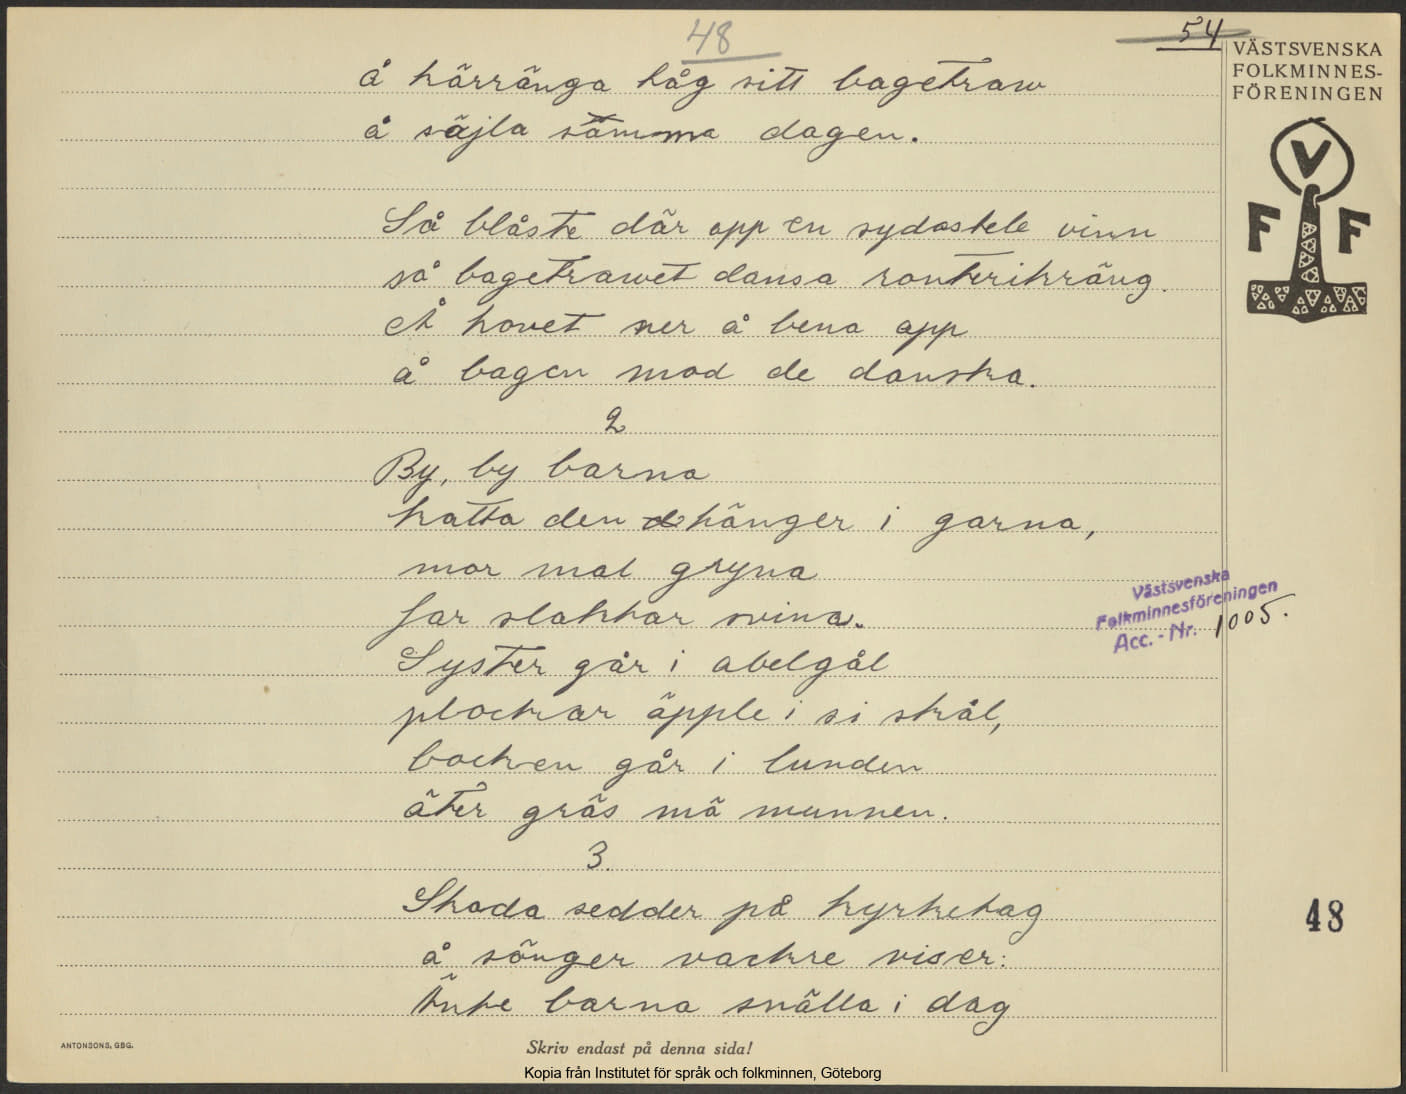 48
54
VÄSTSVENSKA
FOLKMINNES-
FÖRENINGEN
V
F F
å härränga tåg sitt bagetraw
å säjla sämma dagen.
Så blåste där opp en sydostele vinn
så bagetrawet dansa ronterikräng.
Å hovet ner å bena opp
å bagen mod de danska.
2
By, by barna
katta den hänger i garna,
mor mal gryna
far slaktar svina.
Syster går i abelgål
plockar äpple i si skål,
bocken går i lunden
äter gräs mä munnen.
3.
Skada sedder på kyrketag
å sönger vackre viser:
Änte barna snälla i dag
Västsvenska
Folkminnesföreningen
Acc. - Nr. 1005.
48
ANTONSONS, GBG.
Skriv endast på denna sida!
Kopia från Institutet för språk och folkminnen, Göteborg